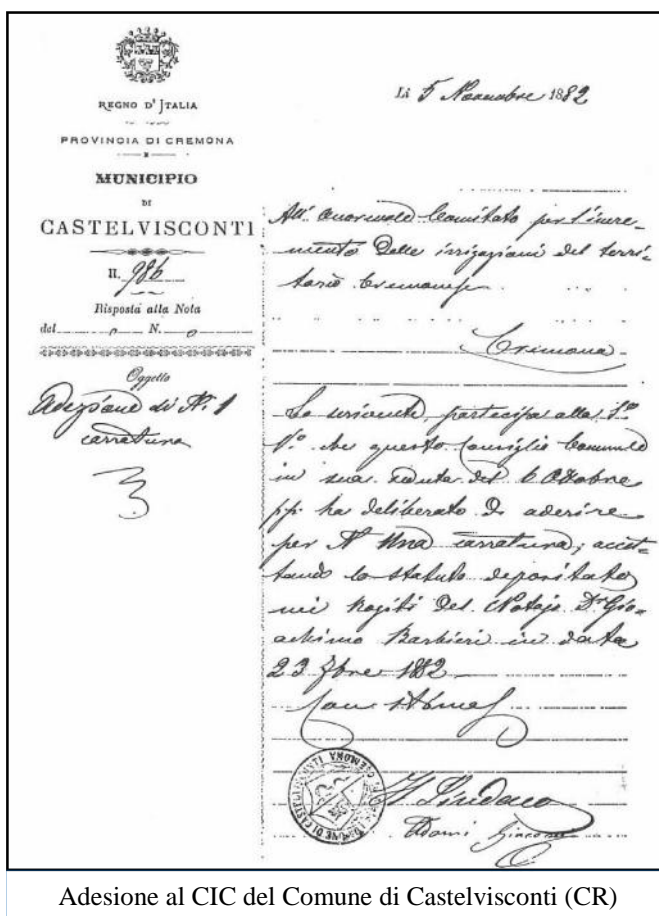 REGNO D'ITALIA
PROVINCIA DI CREMONA
MUNICIPIO
DI
CASTELVISCONTI
N. 986
Risposta alla Nota
del 0 N. 0
Oggetto
Adezione di N. 1
carratura
Li 5 Novembre 1882
All' onorevole Comitato per l'incre-
mento delle irrigazioni del terri-
torio Cremonese
Cremona
Lo scrivente partecipa alla S.
V. che questo Consiglio Comunale
in sua seduta del 6 Ottobre
pp. ha deliberato di aderire
per N. Una carratura, accet-
tando lo statuto depositato
nei Rogiti del Notajo Dr. Gio-
achimo Barbieri in data
23 7bre 1882
Con stima
Il Sindaco
Adami Giacomo
Adesione al CIC del Comune di Castelvisconti (CR)